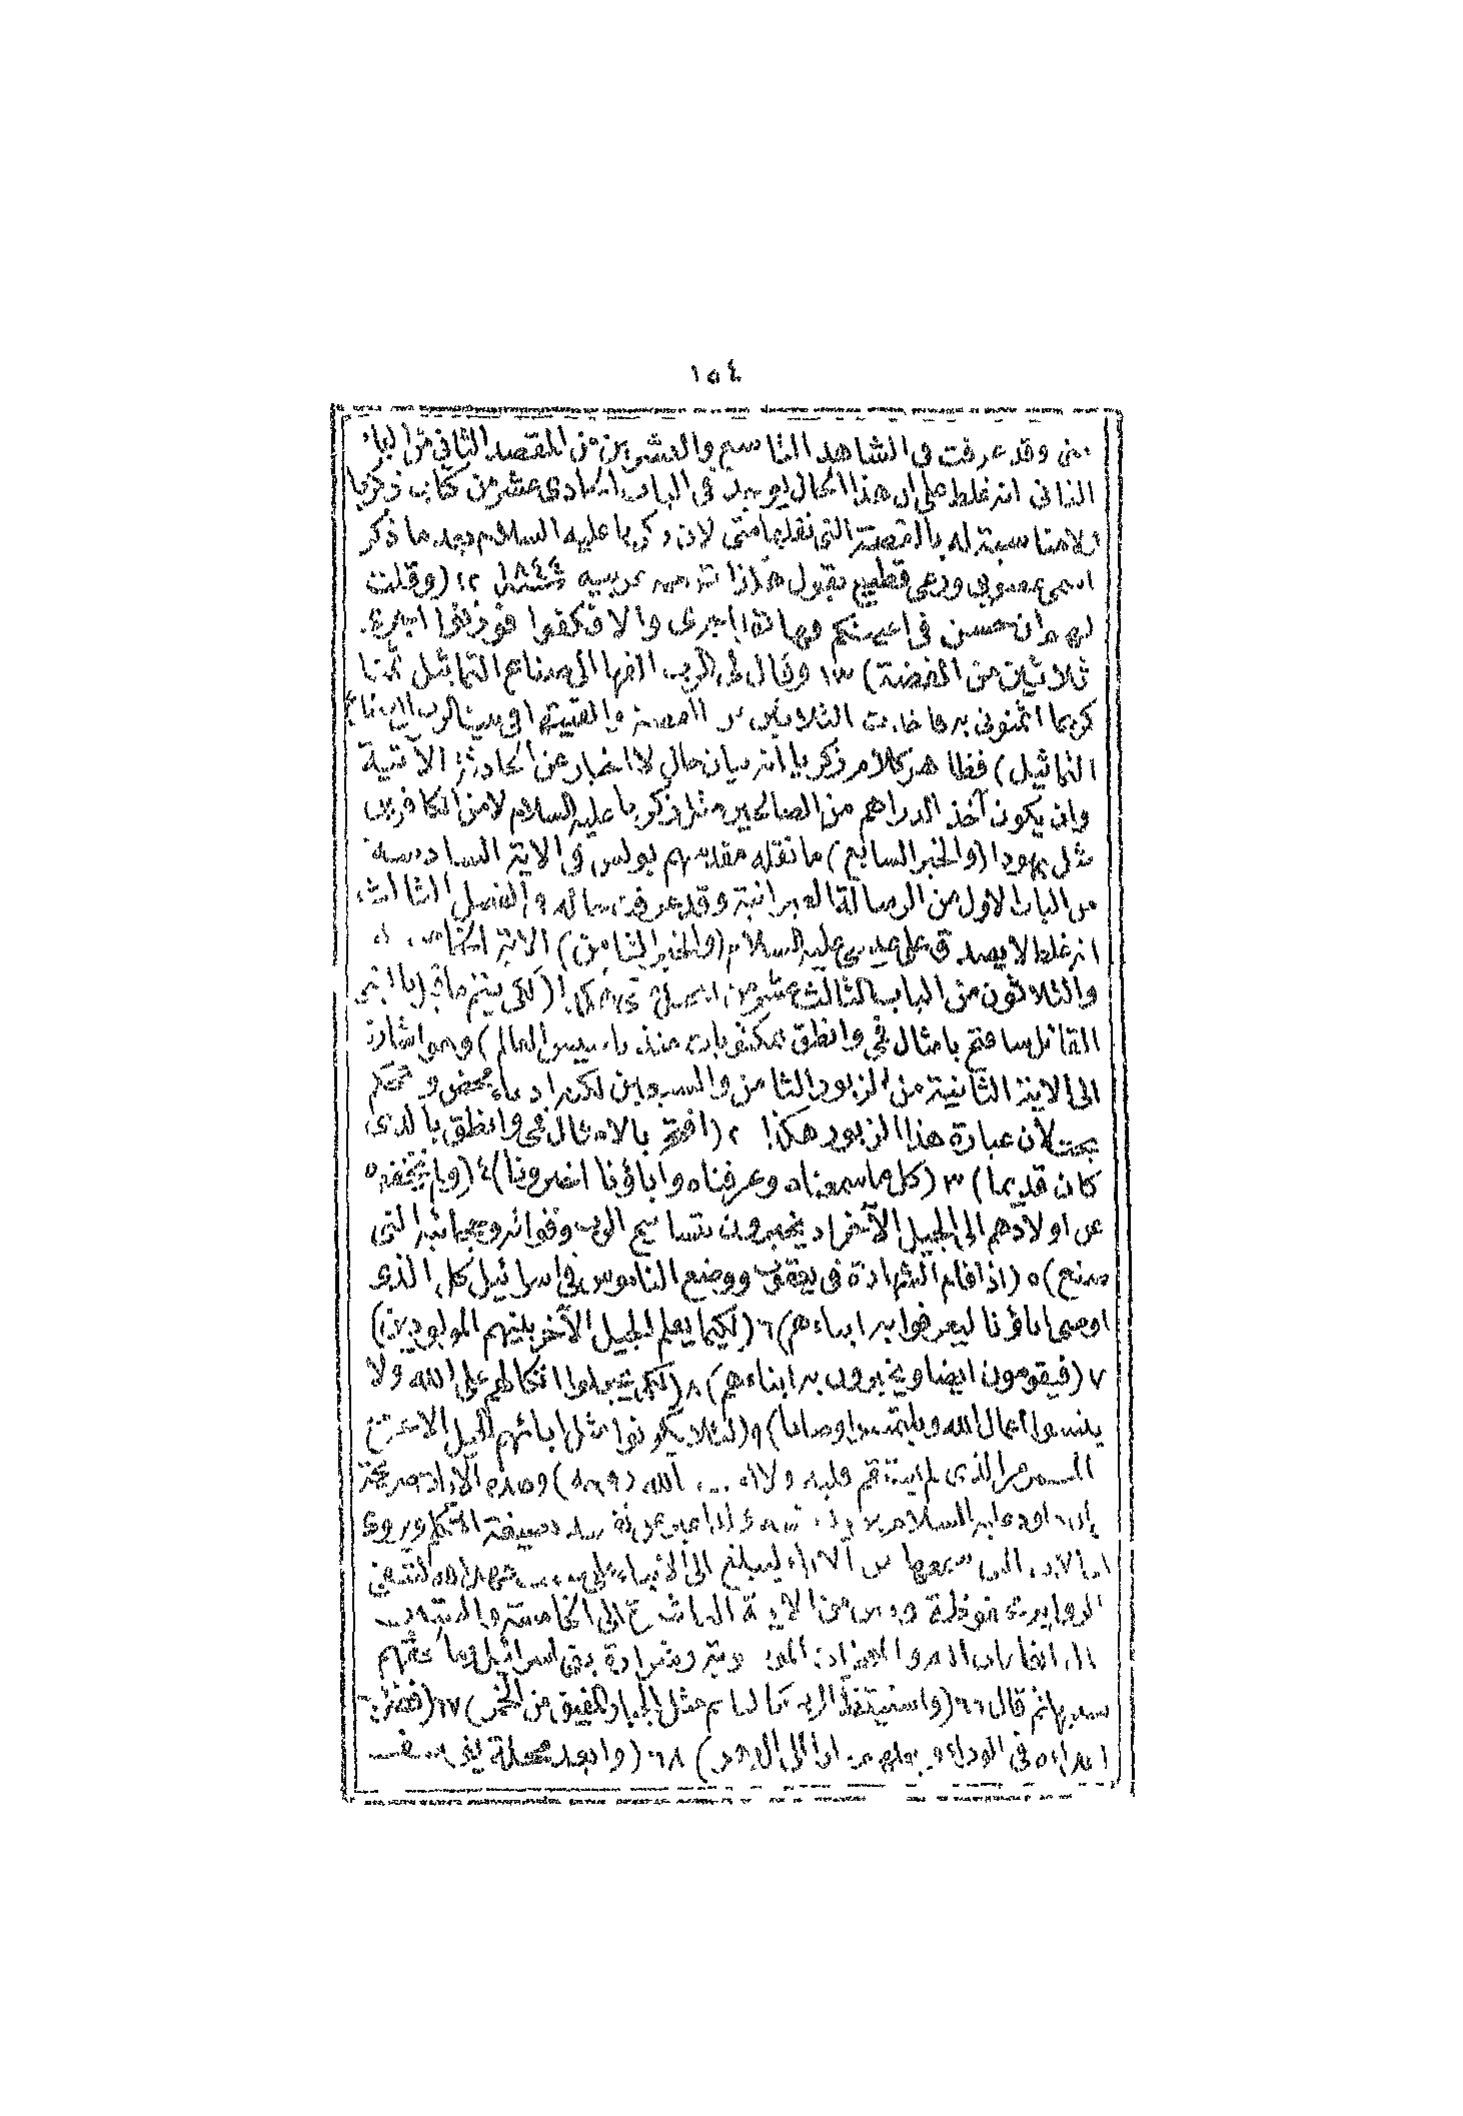 ١٥٤
وقد عرفت في الشاهد التاسع والعشرين من المقصد الثاني من الباب
الثاني انه غلط على ان هذا الحال يوجد في الباب الحادي عشر من كتاب زكريا
ولا مناسبة له بالقصة التي نقلها متى لان زكريا عليه السلام بعد ما ذكر
اسمي عصوين ورعي قطيع يقول هكذا ترجمه عربيه ١٨٤٤ ١٢ (وقلت
لهم ان حسن في اعينكم فهاتوا اجرتي والا فكفوا فوزنوا اجرتي
ثلاثين من الفضة) ١٣ وقال لي الرب القها الى صناع التماثيل ثمنا
كريما اثمنوني به فاخذت الثلاثين من الفضة والقيتها في بيت الرب الى صناع
التماثيل) فظاهر كلام زكريا انه بيان حال لا اخبار عن الحادثة الآتية
وان يكون آخذ الدراهم من الصالحين مثل زكريا عليه السلام لا من الكافرين
مثل يهودا (والخبر السابع) ما نقله مقدسهم بولس في الآية السادسة
من الباب الاول من الرسالة العبرانية وقد عرفت حاله في الفصل الثالث
انه غلط لا يصدق على عيسى عليه السلام (والخبر الثامن) الآية الخامسة
والثلاثون من الباب الثالث عشر من انجيل متى هكذا (لكي يتم ما قيل بالنبي
القائل سافتح بامثال فمي وانطق بمكتوبات منذ تاسيس العالم) وهو اشارة
الى الآية الثانية من الزبور الثامن والسبعين لكنه ادعاء محض وتحكم
بحت لأن عبارة هذا الزبور هكذا ٢ (افتح بالامثال فمي وانطق بالذي
كان قديما) ٣ (كل ما سمعناه وعرفناه وآباؤنا اخبرونا) ٤ (ولم يخفوه
عن اولادهم الى الجيل الآخر اذ يخبرون بتسابيح الرب وقواته وعجائبه التي
صنع) ٥ (اذ اقام الشهادة في يعقوب ووضع الناموس في اسرائيل كل الذي
اوصى اباؤنا ليعرفوا به ابناءهم) ٦ (لكيما يعلم الجيل الآخر بنيهم المولودين)
٧ (فيقومون ايضا ويخبرون به ابناءهم) ٨ (لكي يجعلوا اتكالهم على الله ولا
ينسوا اعمال الله ويلتمسوا وصاياه) ٩ (لئلا يكونوا مثل ابائهم الجيل الاعوج
المتمرد الذي لم يستقم قلبه ولا الله روحه) وهذه الآيات صريحة
داود عليه السلام نفسه ولذا عبر عن نفسه بصيغة المتكلم وروى
الحالات التي سمعها من الآباء ليبلغ الى الابناء على لتبقى
الرواية محفوظة وبين من الآية العاشرة الى الخامسة والستين
انعامات الله والمعجزات الموسوية وشرارة بني اسرائيل وما لحقهم
بسببها ثم قال ٦٦ (واستيقظ الرب كالنائم مثل الجبار المفيق من الخمر) ٦٧ (فضرب
اعداءه في الوراء وجعلهم عارا الى الدهر) ٦٨ (وابعد محلة يوسف